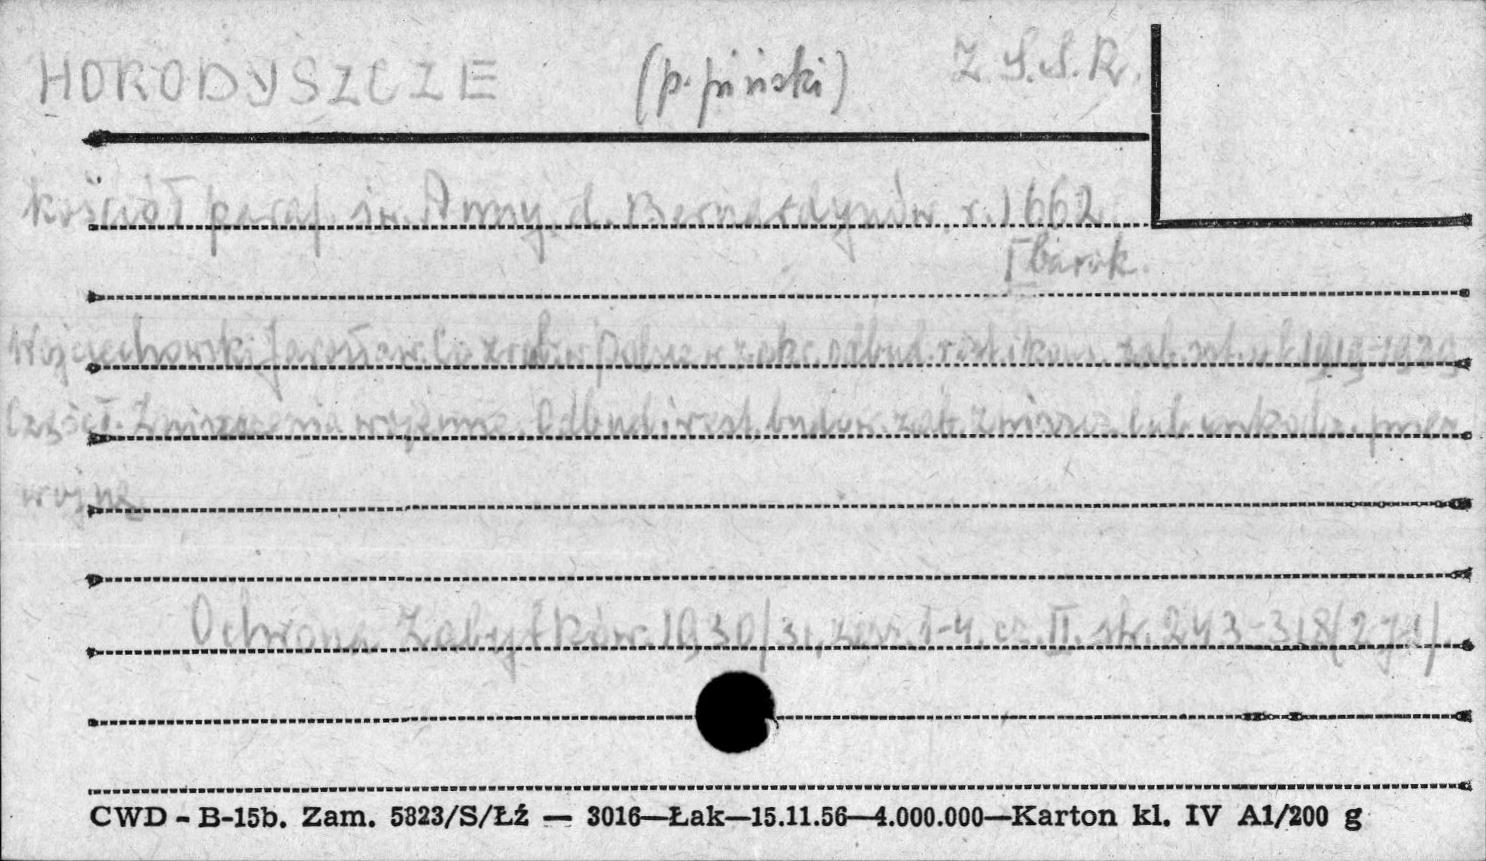 HORODYSZCZE (p. piński) Z.S.S.R.
kościół paraf. św. Anny, d. Bernardynów, r. 1662
I barok.
Wojciechowski Jarosław. Co zrobiono w Polsce w zakr. odbud. rest. i kons. zab. szt. od 1919-1929
Część I. Zniszczenia wojenne. Odbud. i rest. budow. zab. zniszcz. lub uszkodz. przez
wojnę
Ochrona Zabytków. 1930/31, zesz. 1-4, cz. II. str. 243-318 (271).
CWD - B-15b. Zam. 5823/S/Łź — 3016—Łak—15.11.56—4.000.000—Karton kl. IV A1/200 g